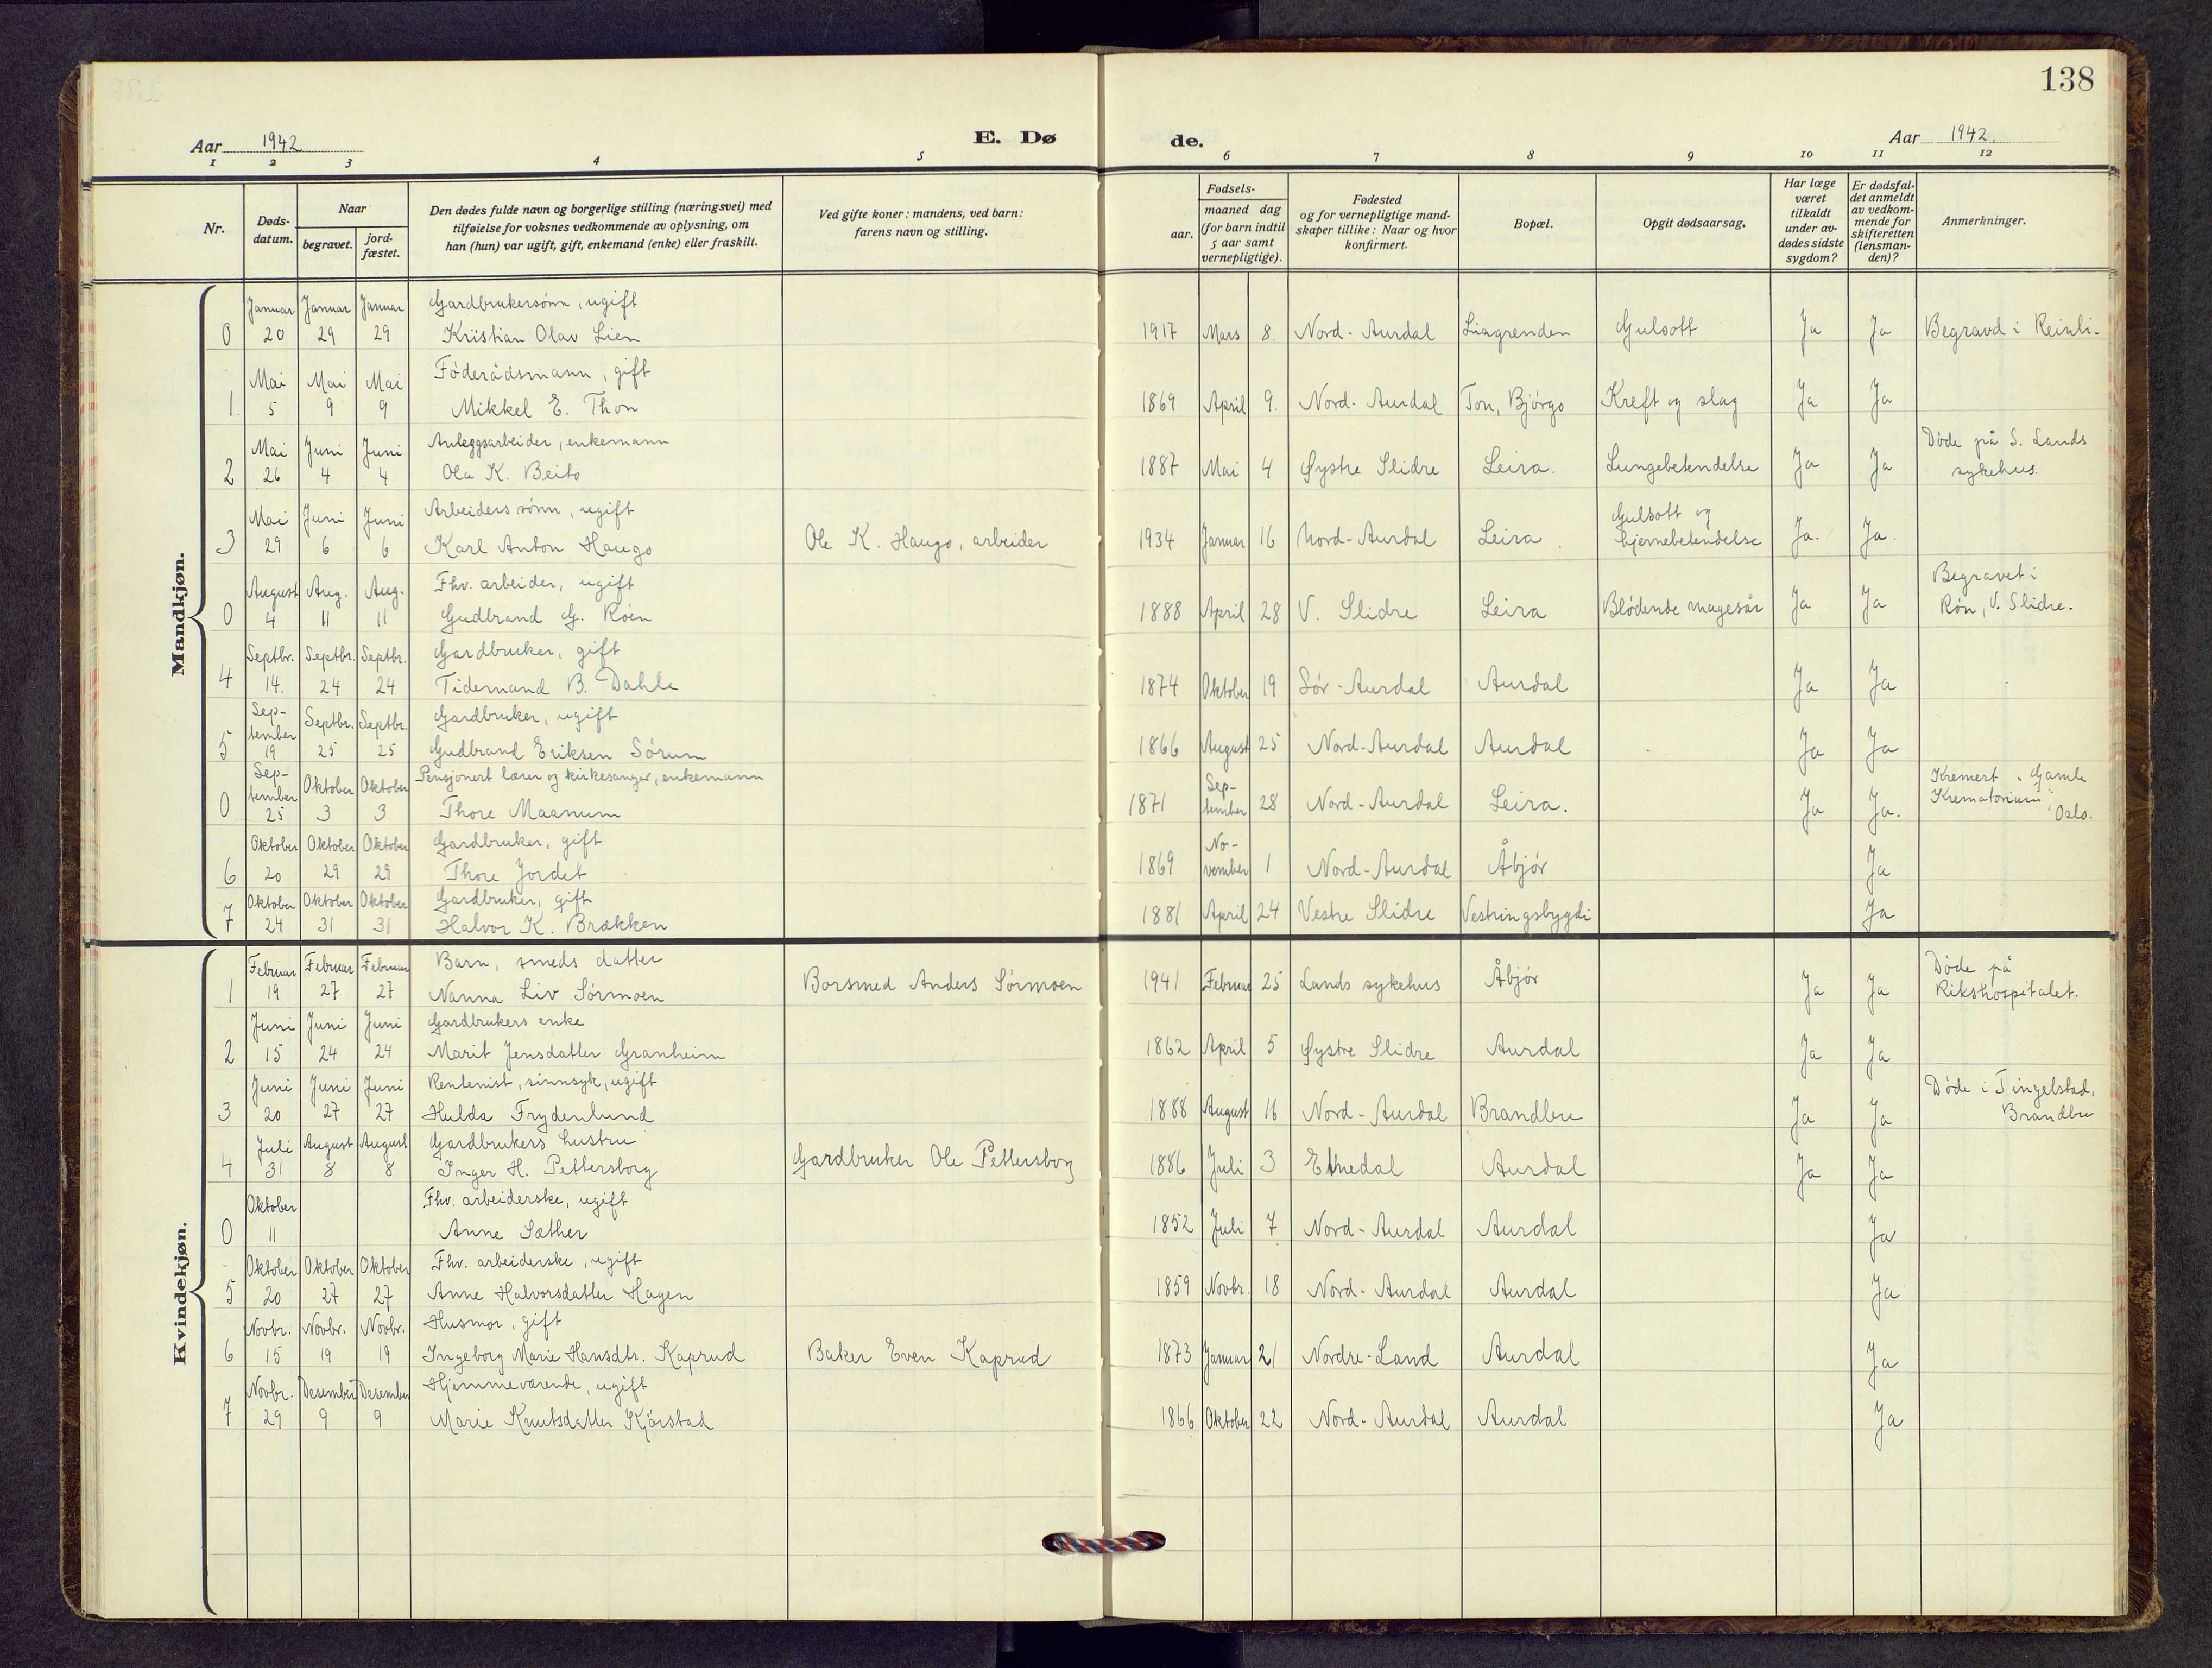 138
Aar 1942 E. Dø de. Aar 1942.
1 2 3 4 5 6 7 8 9 10 11 12
Nr. | Døds-datum. | Naar begravet. | jord-fæstet. | Den dødes fulde navn og borgerlige stilling (næringsvei) med tilføielse for voksnes vedkommende av oplysning, om han (hun) var ugift, gift, enkemand (enke) eller fraskilt. | Ved gifte koner: mandens, ved barn: farens navn og stilling. | Fødsels- aar. | maaned | dag (for barn indtil 5 aar samt vernepligtige). | Fødested og for vernepligtige mand-skaper tillike: Naar og hvor konfirmert. | Bopæl. | Opgit dødsaarsag. | Har læge været tilkaldt under av-dødes sidste sygdom? | Er dødsfal-det anmeldt av vedkom-mende for skifteretten (lensman-den)? | Anmerkninger.
Mandkjøn.
0 | Januar 20 | Januar 29 | Januar 29 | Gardbrukersønn, ugift Kristian Olav Lien | | 1917 | Mars | 8. | Nord-Aurdal | Liagrenden | Gulsott | Ja | Ja | Begravd i Reinli.
1. | Mai 5 | Mai 9 | Mai 9 | Föderådsmann, gift Mikkel E. Thon | | 1869 | April | 9. | Nord-Aurdal | Ton, Björgo | Kreft og slag | Ja | Ja
2 | Mai 26 | Juni 4 | Juni 4 | Anleggsarbeider, enkemann Ola K. Beito | | 1887 | Mai | 4 | Øystre Slidre | Leira. | Lungebetendelse | Ja | Ja | Döde på S. Lands sykehus.
3 | Mai 29 | Juni 6 | Juni 6 | Arbeiders sönn, ugift Karl Anton Haugo | Ole K. Haugo, arbeider | 1934 | Januar | 16 | Nord-Aurdal | Leira. | Gulsott og hjernebetendelse | Ja. | Ja.
0 | August 4 | Aug. 11 | Aug. 11 | Fhv. arbeider, ugift Gudbrand G. Röen | | 1888 | April | 28 | V. Slidre | Leira | Blödende magesår | Ja | Ja | Begravet i Rön, V. Slidre.
4 | Septbr. 14. | Septbr. 24 | Septbr. 24 | Gardbruker, gift Tidemand B. Dahle | | 1874 | Oktober | 19 | Sör-Aurdal | Aurdal | | Ja | Ja
5 | September 19 | Septbr. 25 | Septbr. 25 | Gardbruker, ugift Gudbrand Eriksen Sörum | | 1866 | August | 25 | Nord-Aurdal | Aurdal | | Ja | Ja
0 | September 25 | Oktober 3 | Oktober 3 | Pensjonert lærer og kirkesanger, enkemann Thore Maanum | | 1871 | September | 28 | Nord-Aurdal | Leira. | | Ja | Ja. | Kremert „Gamle Krematorium", Oslo.
6 | Oktober 20 | Oktober 29 | Oktober 29 | Gardbruker, gift Thore Jordet | | 1869 | November | 1 | Nord-Aurdal | Åbjör | | | Ja
7 | Oktober 24 | Oktober 31 | Oktober 31 | Gardbruker, gift Halvor K. Brækken | | 1881 | April | 24 | Vestre Slidre | Vestringsbygdi | | | Ja
Kvindekjøn.
1 | Februar 19 | Februar 27 | Februar 27 | Barn, smeds datter Nanna Liv Sörmoen | Borsmed Anders Sörmoen | 1941 | Februar | 25 | Lands sykehus | Åbjör | | Ja | Ja | Döde på Rikshospitalet.
2 | Juni 15 | Juni 24 | Juni 24 | Gardbrukers enke Marit Jensdatter Granheim | | 1862 | April | 5 | Øystre Slidre | Aurdal | | Ja | Ja
3 | Juni 20 | Juni 27 | Juni 27 | Rentenist, sinnsyk, ugift Hulda Frydenlund | | 1888 | August | 16 | Nord-Aurdal | Brandbu | | Ja | Ja | Döde i Tingelstad, Brandbu
4 | Juli 31 | August 8 | August 8 | Gardbrukers hustru Inger H. Pettersborg | Gardbruker Ole Pettersborg | 1886 | Juli | 3 | Etnedal | Aurdal | | Ja | Ja
0 | Oktober 11 | | | Fhv. arbeiderske, ugift Anne Sæther | | 1852 | Juli | 7 | Nord-Aurdal | Aurdal | | | Ja
5 | Oktober 20 | Oktober 27 | Oktober 27 | Fhv. arbeiderske, ugift Anne Halvorsdatter Hagen | | 1859 | Novbr. | 18 | Nord-Aurdal | Aurdal | | | Ja
6 | Novbr. 15 | Novbr. 19 | Novbr. 19 | Husmor, gift Ingeborg Marie Hansdtr. Kaprud | Baker Even Kaprud | 1873 | Januar | 21 | Nordre-Land | Aurdal | | | Ja
7 | Novbr. 29 | Desember 9 | Desember 9 | Hjemmeværende, ugift Marie Knutsdatter Kjörstad | | 1866 | Oktober | 22 | Nord-Aurdal | Aurdal | | | Ja